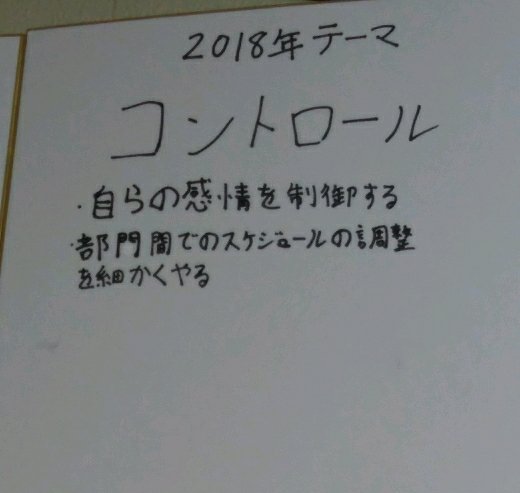 2018年テーマ
コントロール
・自らの感情を制御する
・部門間でのスケジュールの調整
を細かくやる